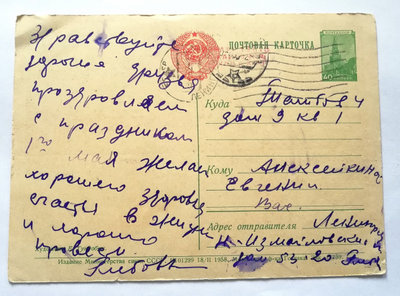 Здравствуйте
дорогие друзья
поздравляем
с праздником
1го мая желаю
хорошего здоровья
счастья в жизни
и хорошо
провести
Любовь
ПОЧТОВАЯ КАРТОЧКА
40
Куда
дом 9 кв 1
Кому Алексейкиной
Евгении
Вас.
Адрес отправителя Ленинград
Н-Измайловский
дом 52 20
Издание Министерства связи 18/II 1958